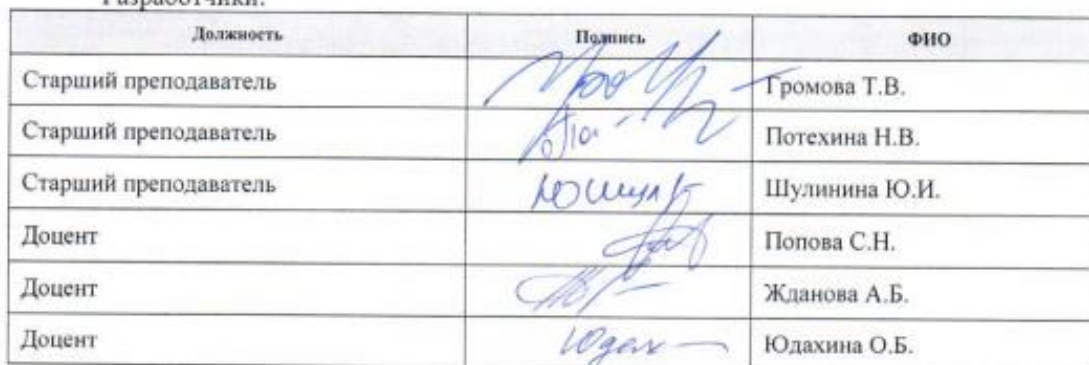 Разработчики:
Должность Подпись ФИО
Старший преподаватель Громова Т.В.
Старший преподаватель Потехина Н.В.
Старший преподаватель Шулинина Ю.И.
Доцент Попова С.Н.
Доцент Жданова А.Б.
Доцент Юдахина О.Б.